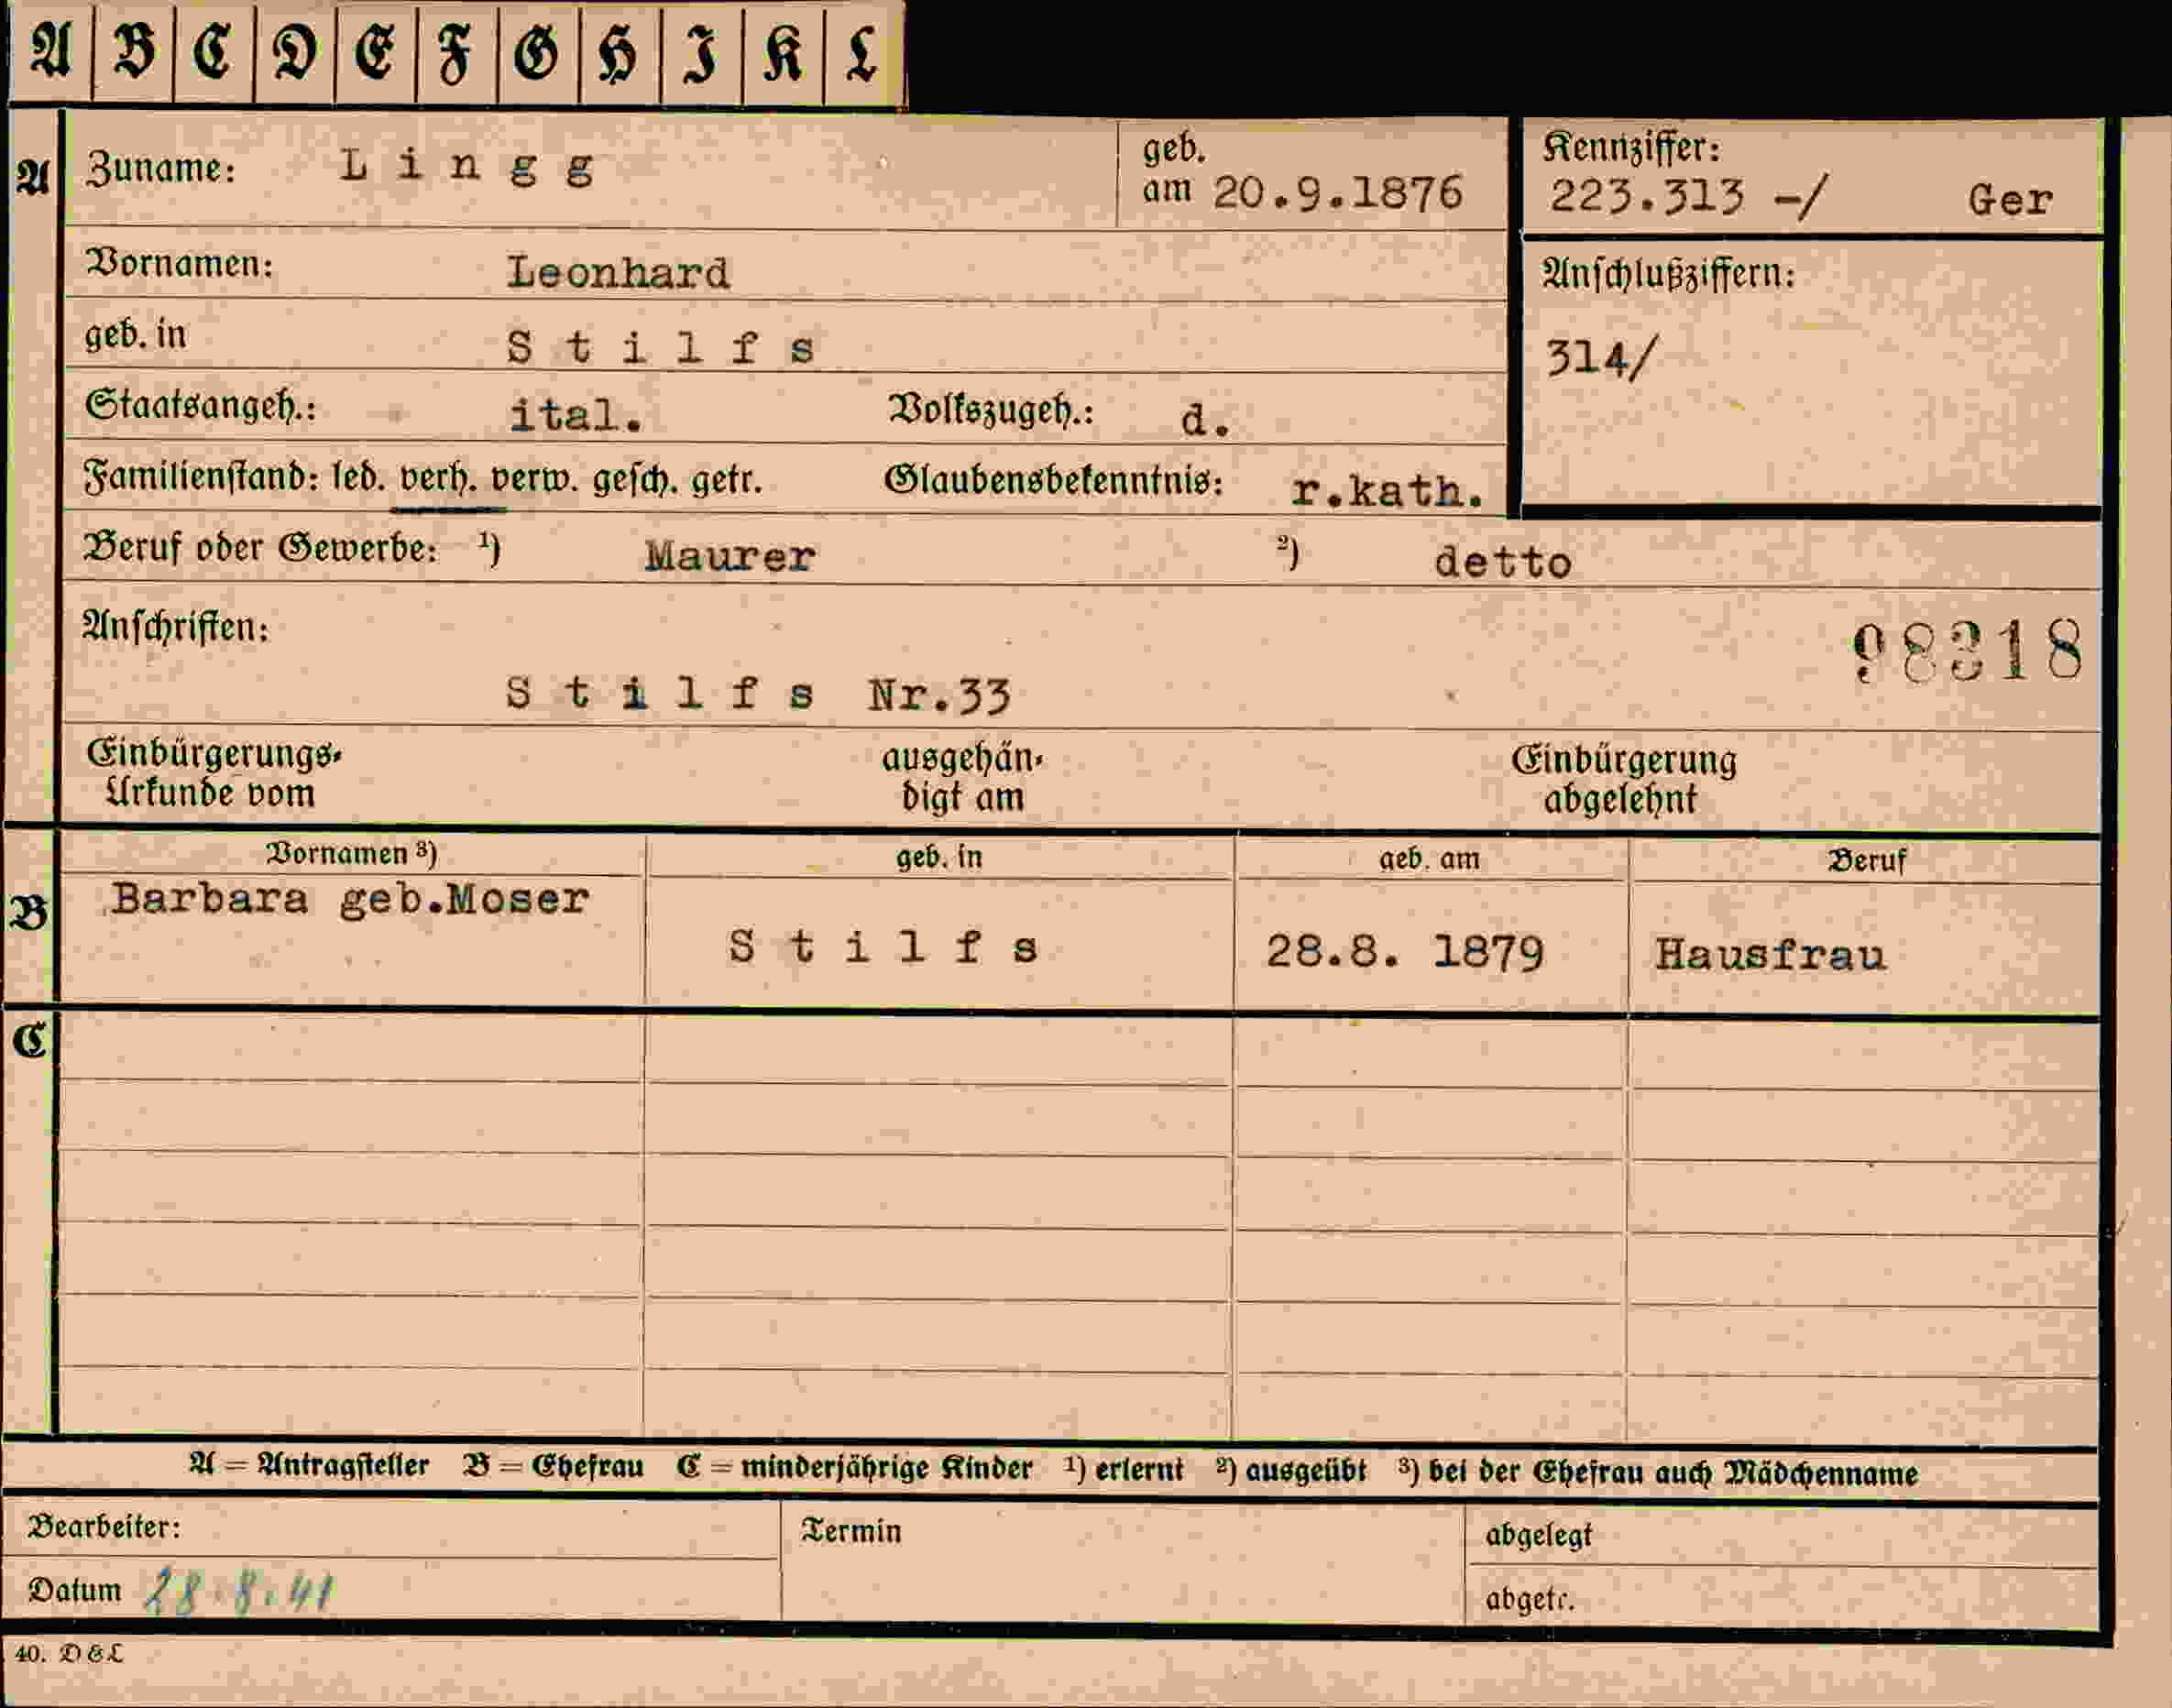 A B C D E F G H I K L
A Zuname: L i n g g geb. am 20.9.1876 Kennziffer: 223.313 -/ Ger
Vornamen: Leonhard Anschlußziffern:
geb. in S t i l f s 314/
Staatsangeh.: ital. Volkszugeh.: d.
Familienstand: led. verh. verw. gesch. getr. Glaubensbekenntnis: r.kath.
Beruf oder Gewerbe: ¹) Maurer ²) detto
Anschriften: 98318
S t i l f s Nr.33
Einbürgerungs- ausgehän- Einbürgerung
Urkunde vom digt am abgelehnt
Vornamen ³) geb. in geb. am Beruf
B Barbara geb.Moser S t i l f s 28.8. 1879 Hausfrau
C
A = Antragsteller B = Ehefrau C = minderjährige Kinder ¹) erlernt ²) ausgeübt ³) bei der Ehefrau auch Mädchenname
Bearbeiter: Termin abgelegt
Datum 28.8.41 abgetr.
40. D & L